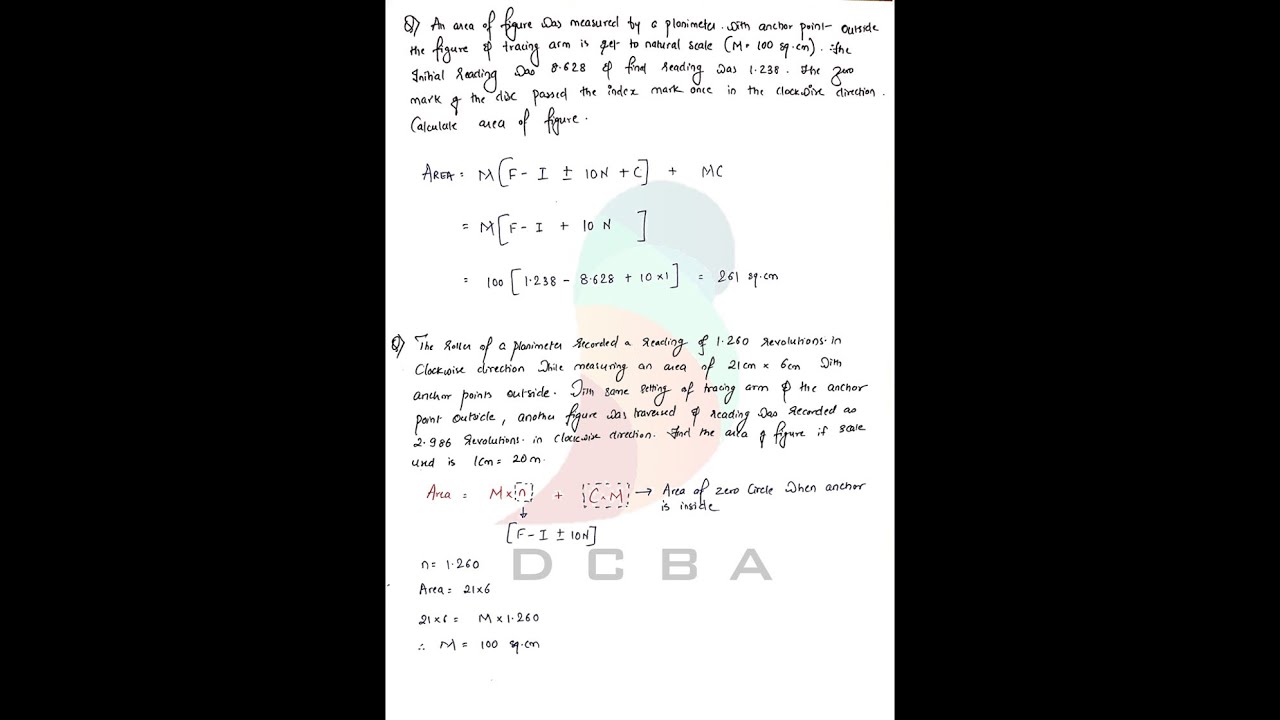 Q) An area of figure was measured by a planimeter with anchor point outside
the figure & tracing arm is set to natural scale (M = 100 sq.cm). The
Initial reading was 8.628 & final reading was 1.238. The zero
mark of the disc passed the index mark once in the clockwise direction.
Calculate area of figure.
AREA = M[F - I ± 10N + C] + MC
= M[F - I + 10 N ]
= 100 [1.238 - 8.628 + 10 x 1] = 261 sq.cm
Q) The roller of a planimeter recorded a reading of 1.260 revolutions. in
Clockwise direction while measuring an area of 21cm x 6cm with
anchor points outside. With same setting of tracing arm & the anchor
point outside, another figure was traversed & reading was recorded as
2.986 revolutions. in clockwise direction. Find the area of figure if scale
used is 1cm = 20m.
Area = M x n + C x M → Area of zero Circle when anchor
is inside
↓
[F - I ± 10N]
n = 1.260
DCBA
Area = 21x6
21x6 = M x 1.260
∴ M = 100 sq.cm